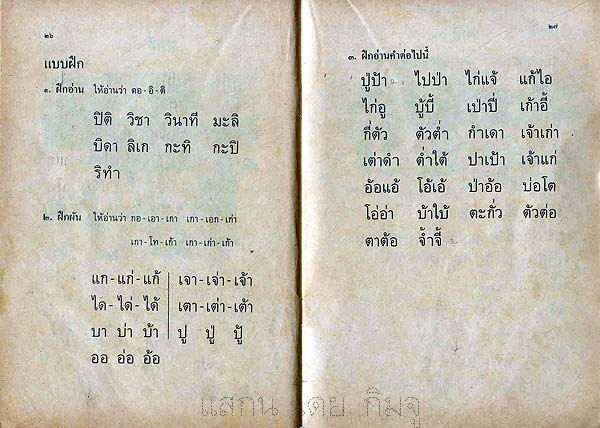 ๒๖
แบบฝึก
๑. ฝึกอ่าน ให้อ่านว่า ตอ - อิ - ติ
ปิติ วิชา วินาที มะลิ
บิดา ลิเก กะทิ กะปิ
ริทำ
๒. ฝึกผัน ให้อ่านว่า กอ - เอา - เกา เกา - เอก - เก่า
เกา - โท - เก้า เกา - เก่า - เก้า
แก - แก่ - แก้ เจา - เจ่า - เจ้า
ได - ได่ - ได้ เตา - เต่า - เต้า
บา บ่า บ้า ปู ปู่ ปู้
ออ อ่อ อ้อ
๒๗
๓. ฝึกอ่านคำต่อไปนี้
ปู่ป้า ไปป่า ไก่แจ้ แก้ไอ
ไก่อู บู้บี้ เป่าปี่ เก้าอี้
กี่ตัว ตัวต่ำ กำเดา เจ้าเก่า
เต่าดำ ต่ำใต้ ปาเป้า เจ้าแก่
อ้อแอ้ โอ้เอ้ ป่าอ้อ บ่อโต
โอ่อ่า บ้าใบ้ ตะกั่ว ตัวต่อ
ตาต้อ จ้ำจี้
แสกน โดย กิมจู